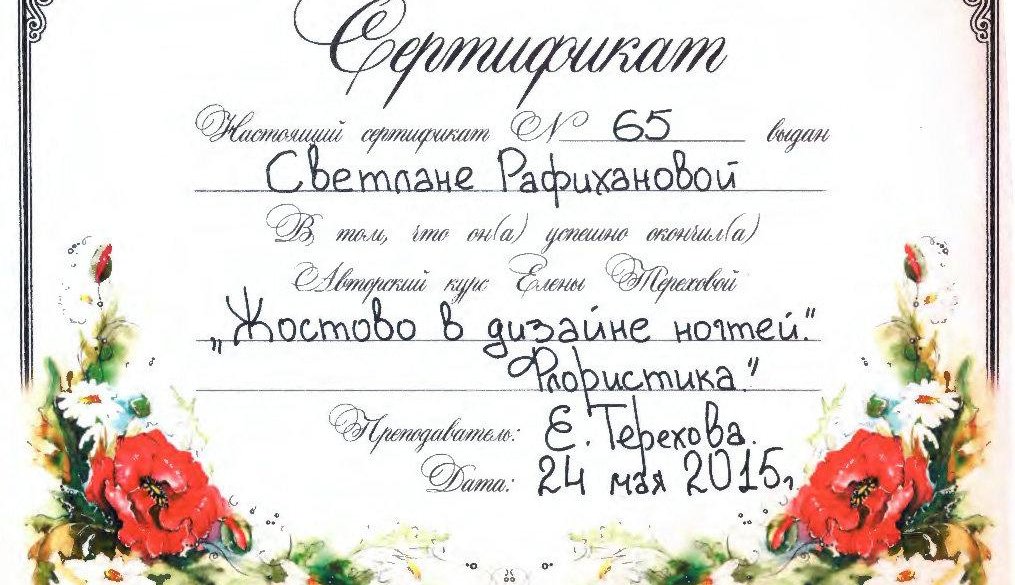 Сертификат
Настоящий сертификат № 65 выдан
Светлане Рафихановой
В том, что он(а) успешно окончил(а)
Авторский курс Елены Тереховой
„Жостово в дизайне ногтей."
Флористика."
Преподаватель: Е. Терехова.
Дата: 24 мая 2015г